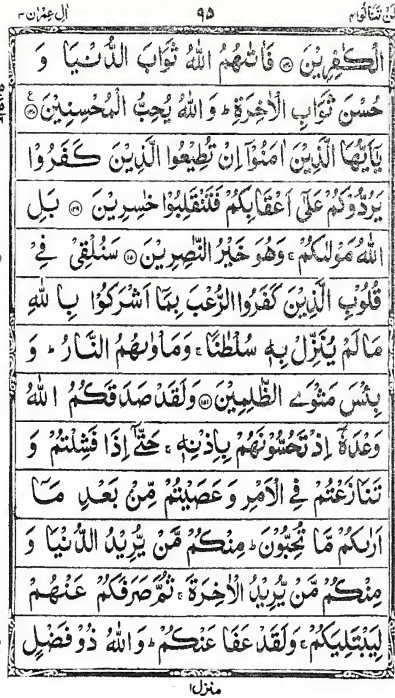 لن تنالوا ٤ ٩٥ اٰل عمرٰن ٣
الْكٰفِرِيْنَ ۝١٤٧ فَاٰتٰىهُمُ اللّٰهُ ثَوَابَ الدُّنْيَا وَ
حُسْنَ ثَوَابِ الْاٰخِرَةِ ؕ وَ اللّٰهُ يُحِبُّ الْمُحْسِنِيْنَ ۝١٤٨
يٰۤاَيُّهَا الَّذِيْنَ اٰمَنُوْۤا اِنْ تُطِيْعُوا الَّذِيْنَ كَفَرُوْا
يَرُدُّوْكُمْ عَلٰۤى اَعْقَابِكُمْ فَتَنْقَلِبُوْا خٰسِرِيْنَ ۝١٤٩ بَلِ
اللّٰهُ مَوْلٰىكُمْ ۚ وَهُوَ خَيْرُ النّٰصِرِيْنَ ۝١٥٠ سَنُلْقِيْ فِيْ
قُلُوْبِ الَّذِيْنَ كَفَرُوا الرُّعْبَ بِمَاۤ اَشْرَكُوْا بِاللّٰهِ
مَالَمْ يُنَزِّلْ بِهٖ سُلْطٰنًا ۚ وَمَاْوٰىهُمُ النَّارُ ؕ وَ
بِئْسَ مَثْوَى الظّٰلِمِيْنَ ۝١٥١ وَلَقَدْ صَدَقَكُمُ اللّٰهُ
وَعْدَهٗۤ اِذْ تَحُسُّوْنَهُمْ بِاِذْنِهٖ ۚ حَتّٰۤى اِذَا فَشِلْتُمْ وَ
تَنَازَعْتُمْ فِي الْاَمْرِ وَعَصَيْتُمْ مِّنْۢ بَعْدِ مَاۤ
اَرٰىكُمْ مَّا تُحِبُّوْنَ ؕ مِنْكُمْ مَّنْ يُّرِيْدُ الدُّنْيَا وَ
مِنْكُمْ مَّنْ يُّرِيْدُ الْاٰخِرَةَ ۚ ثُمَّ صَرَفَكُمْ عَنْهُمْ
لِيَبْتَلِيَكُمْ ۚ وَلَقَدْ عَفَا عَنْكُمْ ؕ وَاللّٰهُ ذُوْ فَضْلٍ
منزل ١